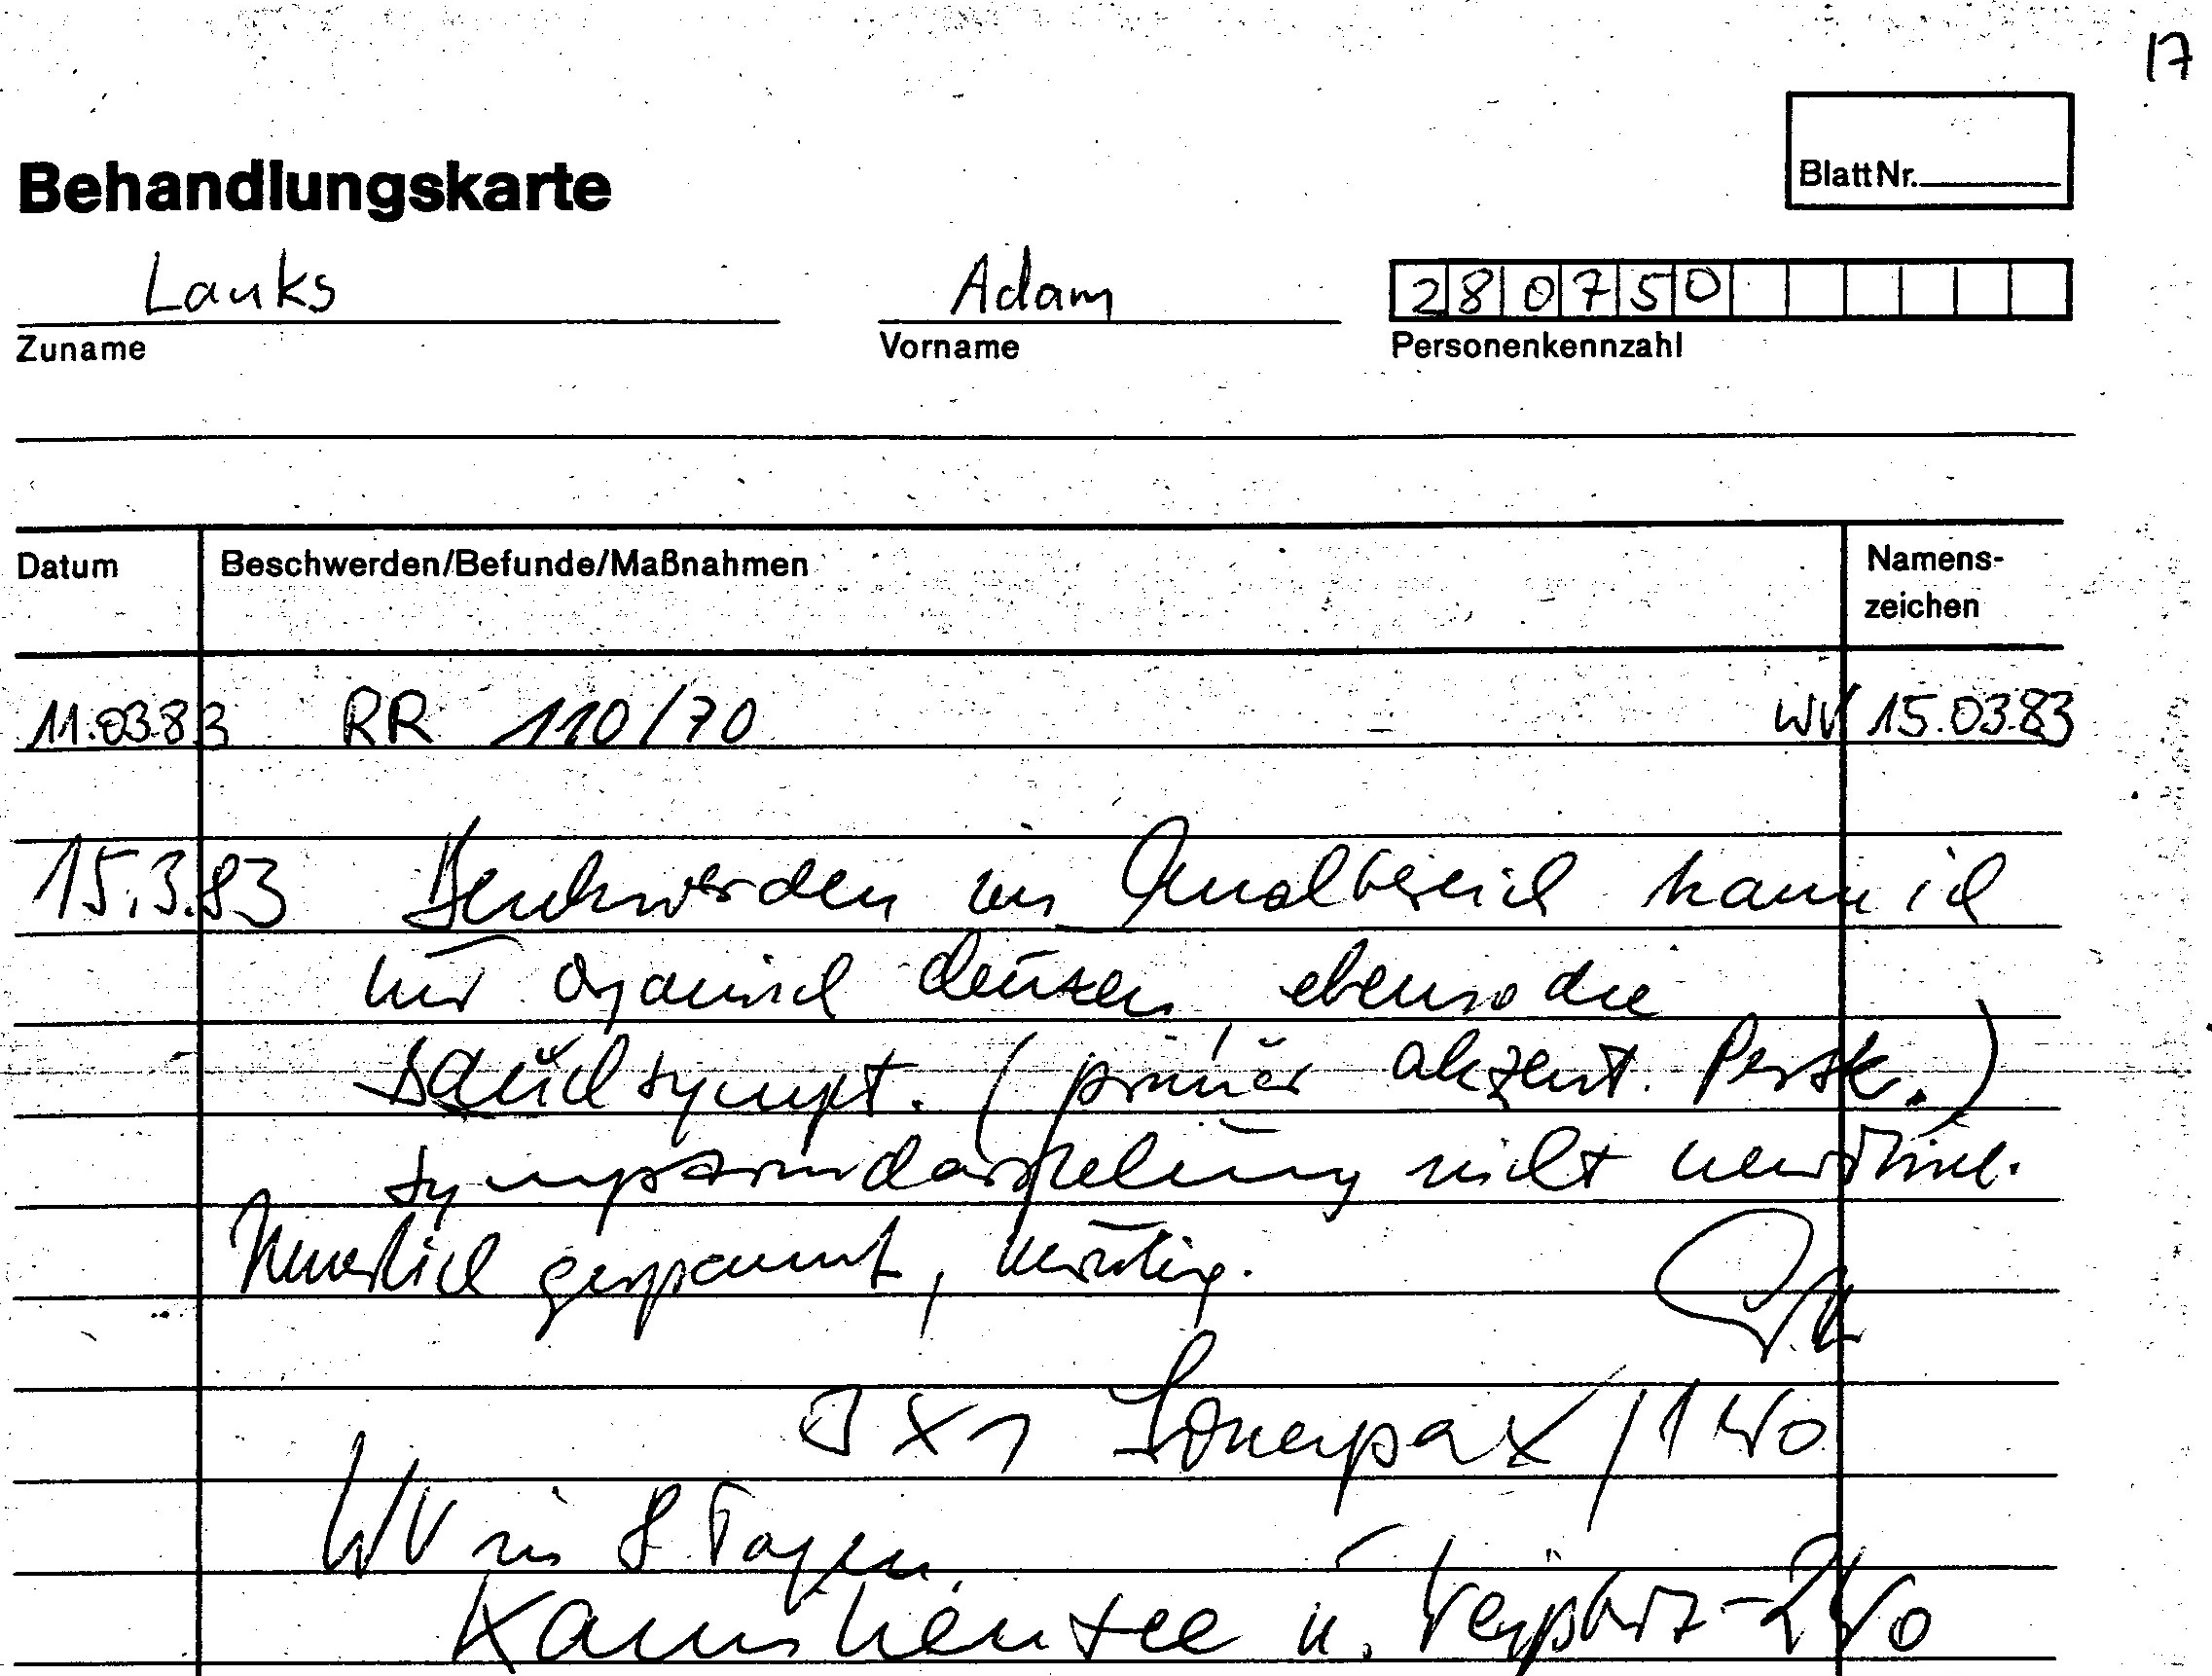 17
Blatt Nr.
Behandlungskarte
Lauks Adam 280750
Zuname Vorname Personenkennzahl
Datum Beschwerden/Befunde/Maßnahmen Namens-
zeichen
11.03.83 RR 110/70 WV 15.03.83
15.3.83 Beschwerden im Analbereich kann ich
nur organisch deuten, ebenso die
Bauchsympt. (primär akzent. Persk.)
Symptomdarstellung nicht neurotisch.
Innerlich gespannt,
3x1 Sonapax/1 Wo
WV in 8 Tagen.
Kamillentee u. - 2 Wo